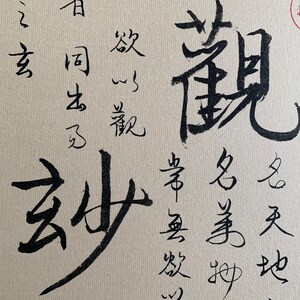 觀
名天地
名萬物
常無欲以
欲以觀
玅
同出而
之玄